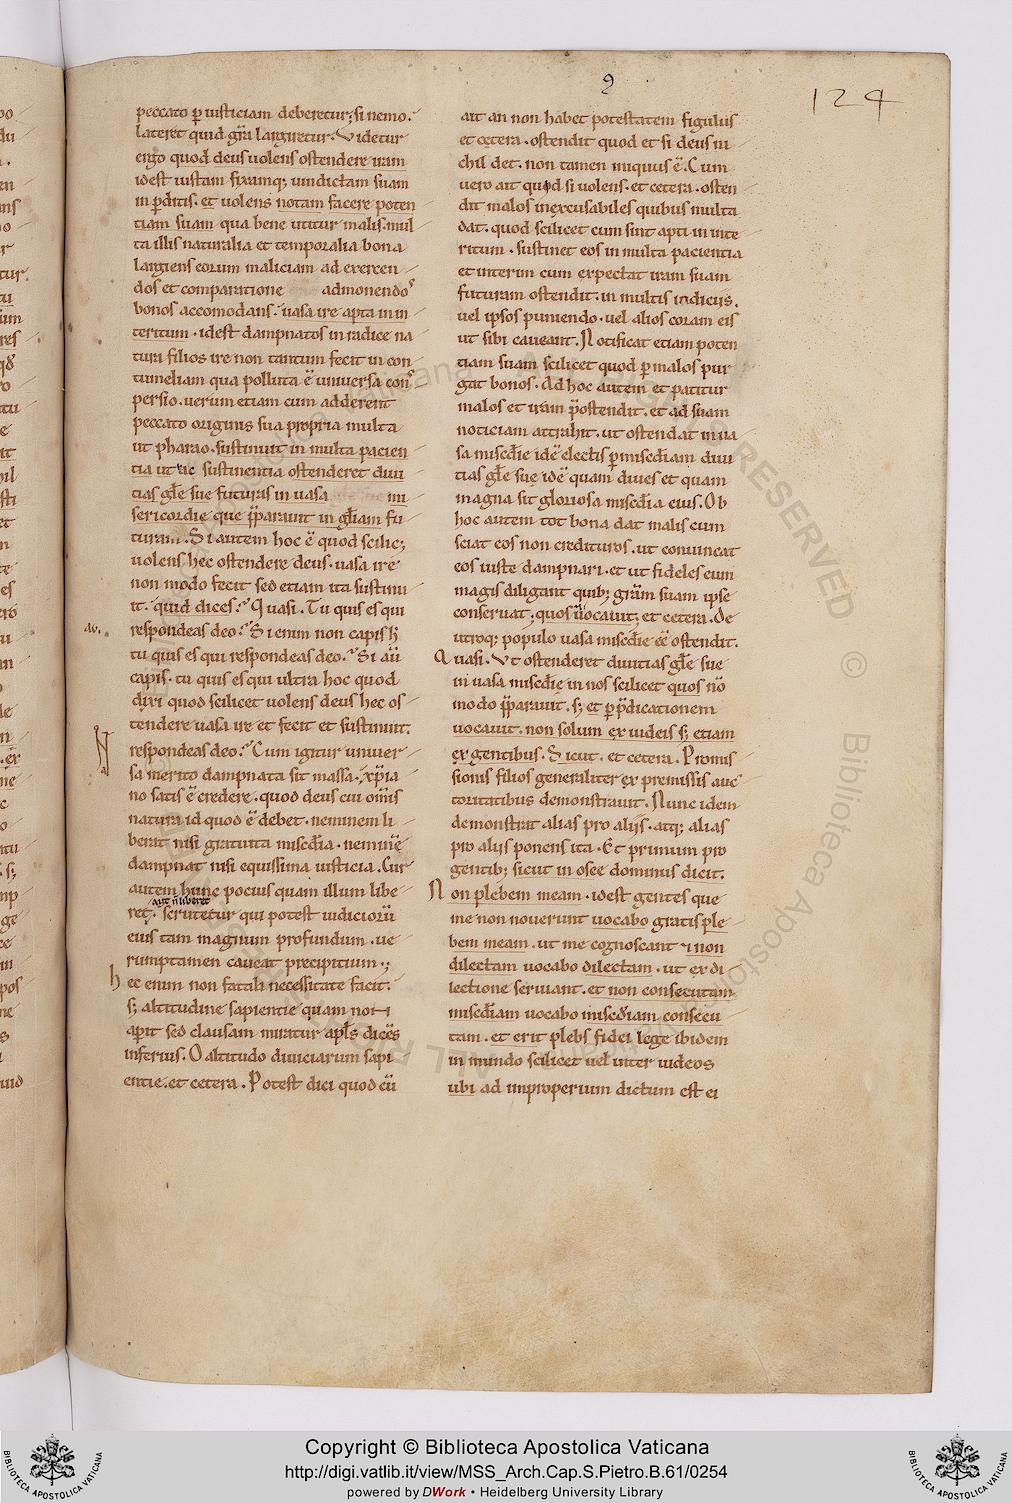 9
124
peccato ꝑ iusticiam deberetur; si nemo.
lateret quid grã largiretur. Videtur
ergo quod deus uolens ostendere iram
idest iustam fixamq; uindictam suam
in ꝑditis. et uolens notam facere poten
tiam suam qua bene utitur malis. mul
ta illis naturalia et temporalia bona
largiens eorum maliciam ad exercen
dos et comparatione admonendos
bonos accomodans. uasa ire apta in in
teritum. idest dampnatos in radice na
tura filios ire non tantum fecit in con
tumeliam qua polluta ē uniuersa con
persio. uerum etiam cum adderent
peccato originis sua propria multa
ut pharao. sustinuit in multa pacien
tia ut sic sustinentia ostenderet diui
tias glĩe sue futuras in uasa mi
sericordie que p̄parauit in glĩam fu
turam. Si autem hoc ē quod scilic;
uolens hec ostendere deus. uasa ire
non modo fecit sed etiam ita sustinu
it. quid dices? Quasi. Tu quis es qui
au. respondeas deo? Si enim non capis h̄
tu quis es qui respondeas deo? Si aũ
capis. tu quis es qui ultra hoc quod
dixi quod scilicet uolens deus hec os
tendere uasa ire et fecit et sustinuit.
respondeas deo? Cum igitur uniuer
sa merito dampnata sit massa. xp̃ia
no satis ē credere. quod deus cui om̄is
natura id quod ē debet. neminem li
berat nisi gratuita misc̃dia. neminē
dampnat nisi equissima iusticia. Cur
autem hunc pocius quam illum libe
aut ñ liberet
ret. scrutetur qui potest iudiciorũ
eius tam magnum profundum. ue
rumptamen caueat precipitium.;
hec enim non fatali necessitate facit.
s; altitudine sapientie quam non
aperit sed clausam miratur apl̃s dicēs
inferius. O altitudo diuiciarum sapi
entie. et cetera. Potest dici quod cũ
ait an non habet potestatem figulus
et cetera. ostendit quod et si deus ni
chil det. non tamen iniquus ē. Cum
uero ait quod si uolens. et cetera. osten
dit malos inexcusabiles quibus multa
dat. quod scilicet cum sint apti in inte
ritum. sustinet eos in multa pacientia
et interim cum expectat iram suam
futuram ostendit. in multis indiciis.
uel ipsos puniendo. uel alios coram eis
ut sibi caueant. Notificat etiam poten
tiam suam scilicet quod ꝑ malos pur
gat bonos. Ad hoc autem et patitur
malos et iram p̄ostendit. et ad suam
noticiam attrahit. ut ostendat in ua
sa misc̃die idē electis ꝑ misc̃diam diui
tias glĩe sue idē quam diues et quam
magna sit gloriosa misc̃dia eius. Ob
hoc autem tot bona dat malis cum
sciat eos non credituros. ut conuincat
eos iuste dampnari. et ut fideles eum
magis diligant quib; grãm suam ipse
conseruat; quos uocauit; et cetera. De
utroq; populo uasa misc̃die eē ostendit.
Quasi. Vt ostenderet diuitias glĩe sue
in uasa misc̃die in nos scilicet quos nõ
modo p̄parauit. s; et ꝑ p̄dicationem
uocauit. non solum ex iudeis s; etiam
ex gentibus. Sicut. et cetera. Promis
sionis filios generaliter ex premissis auc
toritatibus demonstrauit. Nunc idem
demonstrat alias pro aliis. atq; alias
pro aliis ponens ita. Et primum pro
gentib; sicut in osee dominus dicit.
Non plebem meam. idest gentes que
me non nouerunt uocabo gratis ple
bem meam. ut me cognoscant. et non
dilectam uocabo dilectam. ut ex di
lectione seruiant. et non consecutam
misc̃diam uocabo misc̃diam consecu
tam. et erit plebs fidei lege ibidem
in mundo scilicet uel inter iudeos
ubi ad improperium dictum est ei
Copyright © Biblioteca Apostolica Vaticana
http://digi.vatlib.it/view/MSS_Arch.Cap.S.Pietro.B.61/0254
powered by DWork • Heidelberg University Library
BIBLIOTECA APOSTOLICA VATICANA
BIBLIOTECA APOSTOLICA VATICANA